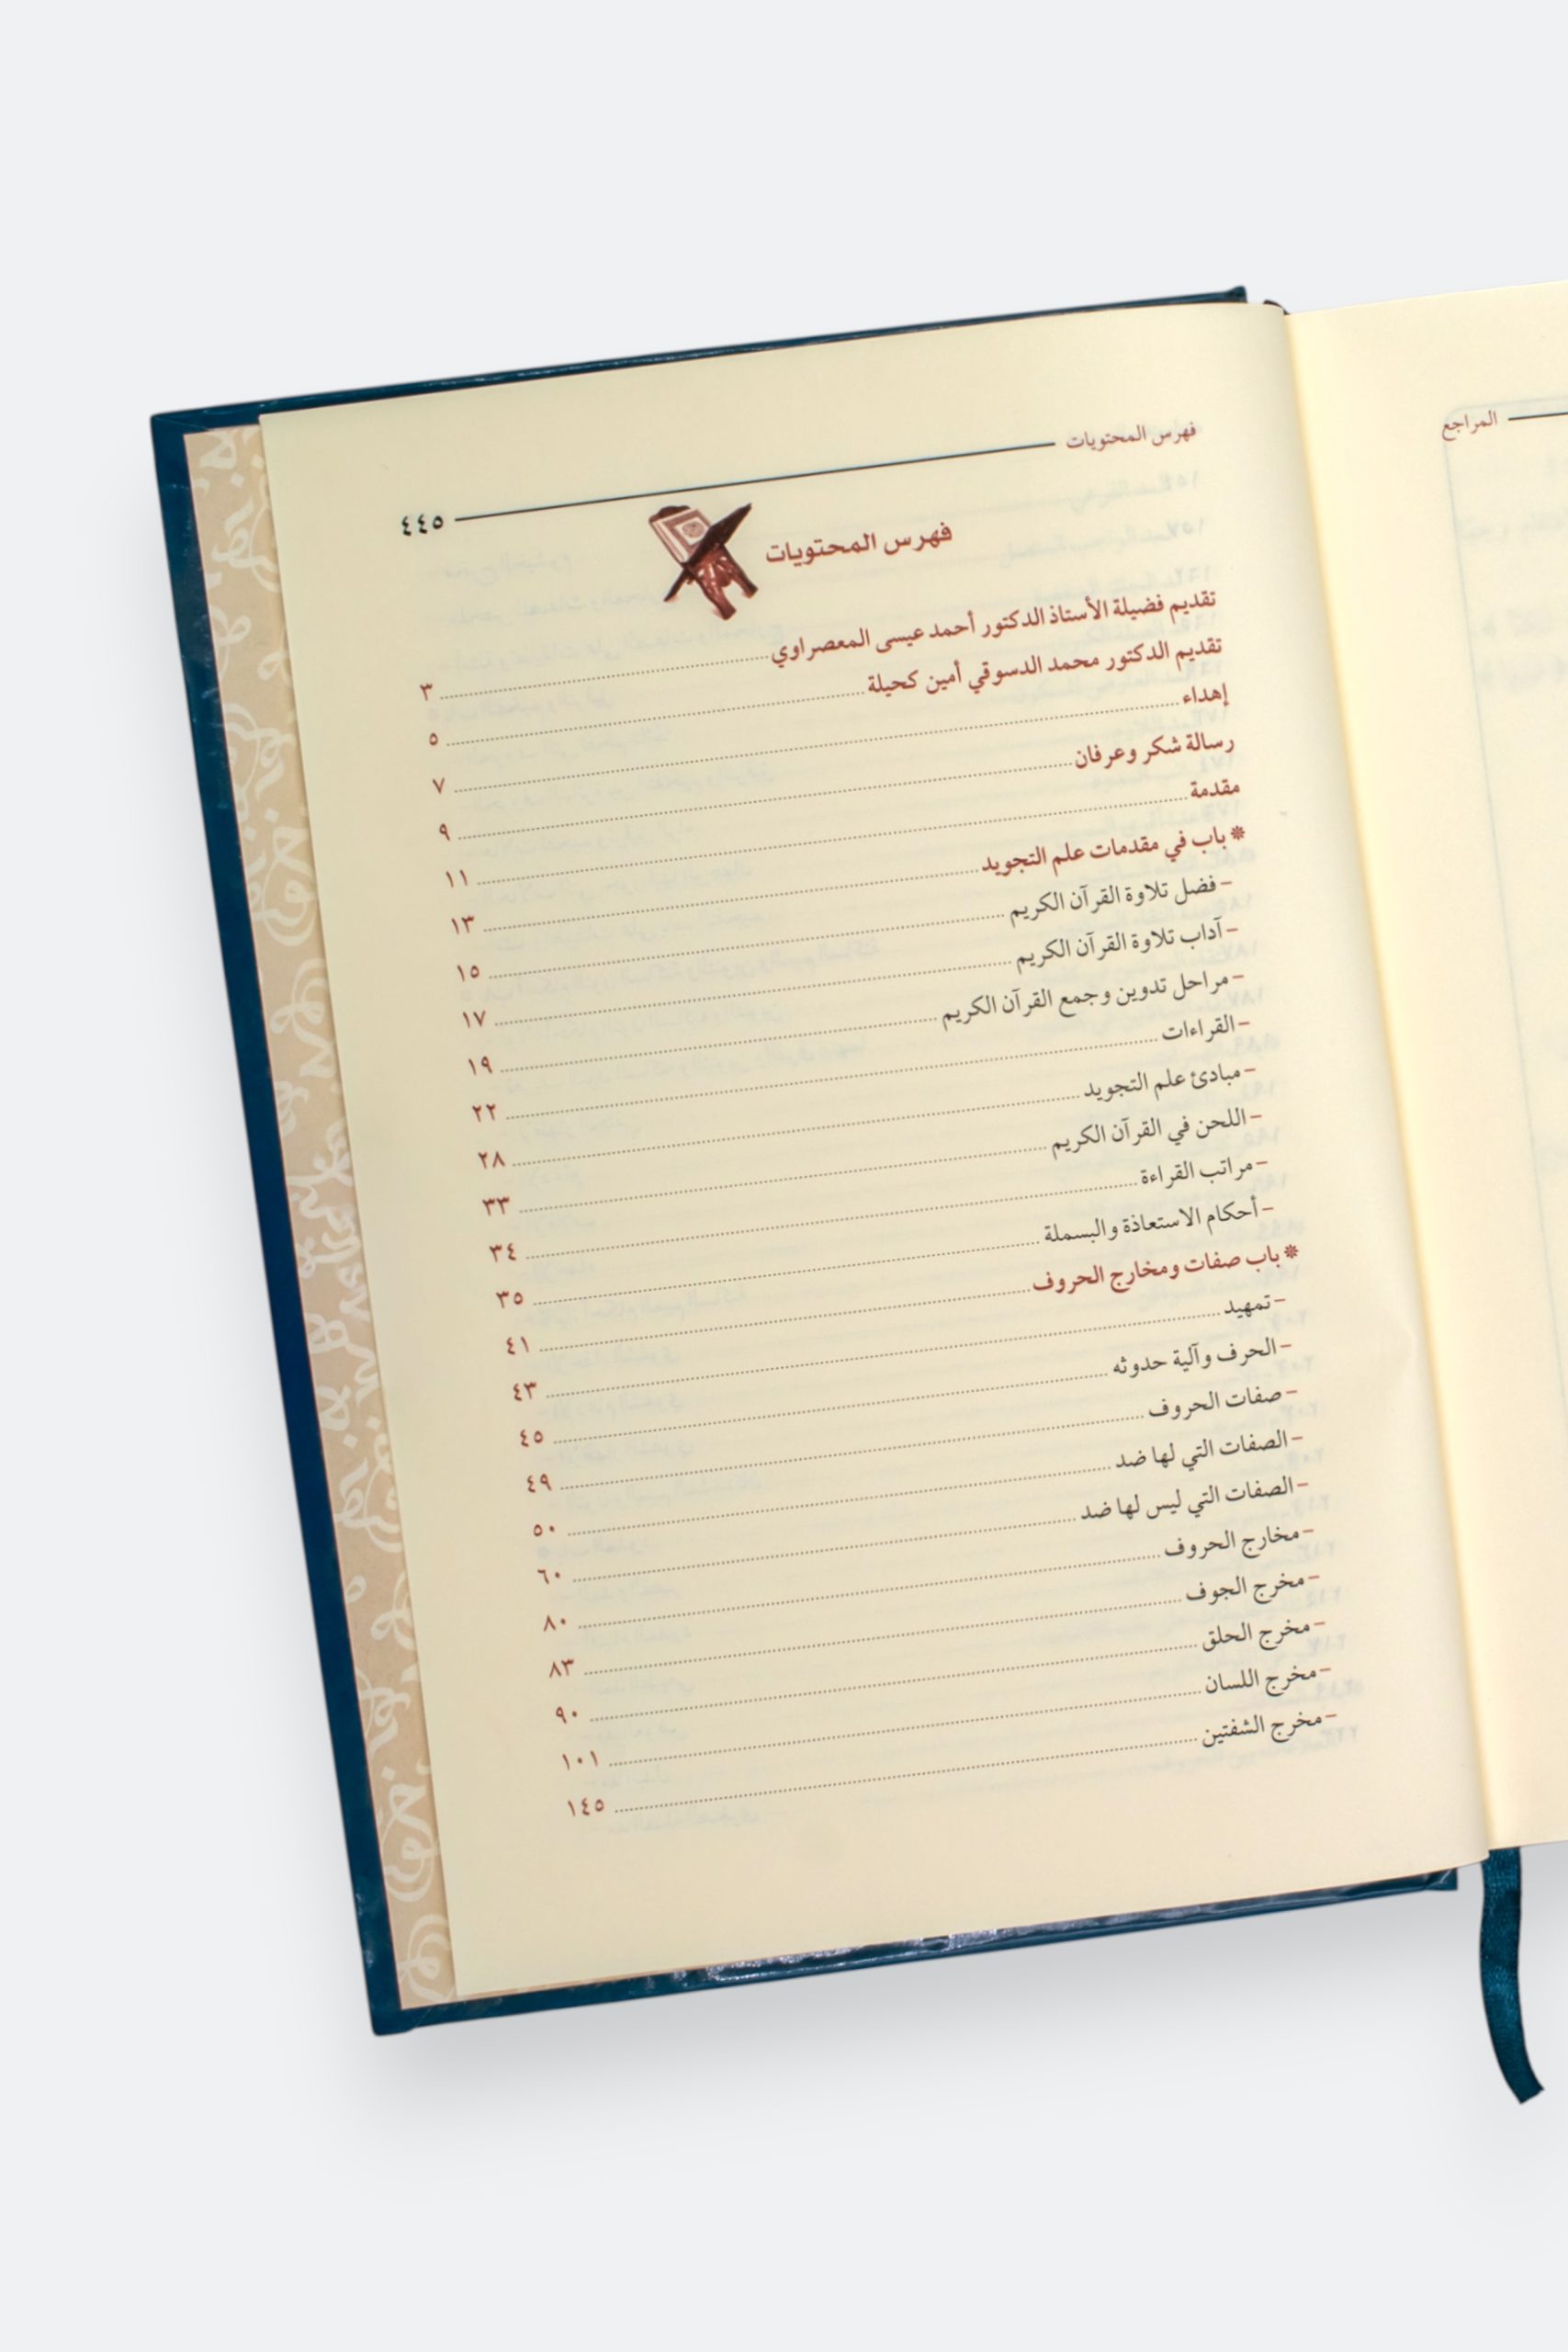 فهرس المحتويات ٤٤٥
فهرس المحتويات
تقديم فضيلة الأستاذ الدكتور أحمد عيسى المعصراوي ٣
تقديم الدكتور محمد الدسوقي أمين كحيلة ٥
إهداء ٧
رسالة شكر وعرفان ٩
مقدمة ١١
* باب في مقدمات علم التجويد ١٣
- فضل تلاوة القرآن الكريم ١٥
- آداب تلاوة القرآن الكريم ١٧
- مراحل تدوين وجمع القرآن الكريم ١٩
- القراءات ٢٢
- مبادئ علم التجويد ٢٨
- اللحن في القرآن الكريم ٣٣
- مراتب القراءة ٣٤
- أحكام الاستعاذة والبسملة ٣٥
* باب صفات ومخارج الحروف ٤١
- تمهيد ٤٣
- الحرف وآلية حدوثه ٤٥
- صفات الحروف ٤٩
- الصفات التي لها ضد ٥٠
- الصفات التي ليس لها ضد ٦٠
- مخارج الحروف ٨٠
- مخرج الجوف ٨٣
- مخرج الحلق ٩٠
- مخرج اللسان ١٠١
- مخرج الشفتين ١٤٥
المراجع